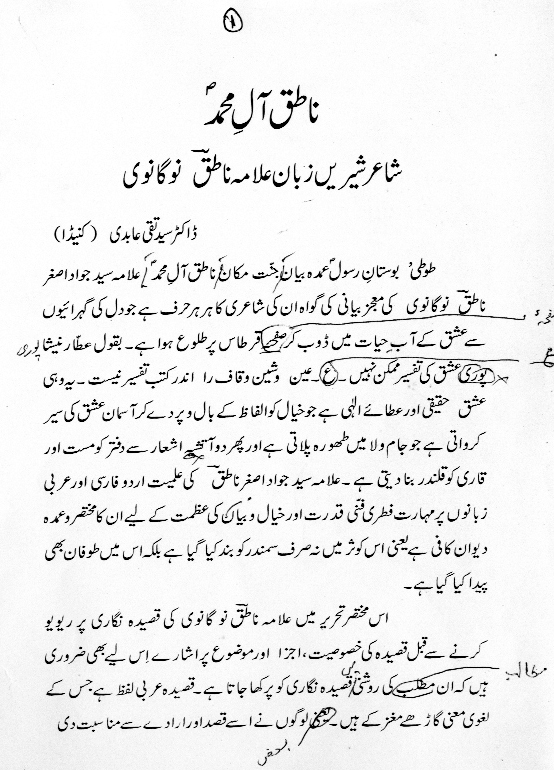 ۱
ناطق آلِ محمدؐ
شاعر شیریں زبان علامہ ناطقؔ نوگانوی
ڈاکٹر سید تقی عابدی (کنیڈا)
طوطیٔ بوستانِ رسولؐ عمدہ بیان جنت مکان ناطق آلِ محمدؐ علامہ سید جواد اصغر
ناطقؔ نوگانوی کی معجز بیانی کی گواہ ان کی شاعری کا ہر ہر حرف ہے جو دل کی گہرائیوں
سے عشق کے آب حیات میں ڈوب کر صفحے قرطاس پر طلوع ہوا ہے۔ بقول عطار نیشا پوری
پوری عشق کی تفسیر ممکن نہیں۔ ع۔ عین وشین وقاف را اندر کتب تفسیر نیست۔ یہ وہی
عشق حقیقی اور عطائے الٰہی ہے جو خیال کو الفاظ کے بال و پر دے کر آسمان عشق کی سیر
کرواتی ہے جو جام ولا میں طہورہ پلاتی ہے اور پھر دو آتشہ اشعار سے دفتر کو مست اور
قاری کو قلندر بنا دیتی ہے۔ علامہ سید جواد اصغر ناطقؔ کی علمیت اردو فارسی اور عربی
زبانوں پر مہارت فطری فنی قدرت اور خیال و بیان کی عظمت کے لیے ان کا مختصر و عمدہ
دیوان کافی ہے یعنی اس کوثر میں نہ صرف سمندر کو بند کیا گیا ہے بلکہ اس میں طوفان بھی
پیدا کیا گیا ہے۔
اس مختصر تحریر میں علامہ ناطقؔ نوگانوی کی قصیدہ نگاری پر ریویو
کرنے سے قبل قصیدہ کی خصوصیت، اجزا اور موضوع پر اشارے اِس لیے بھی ضروری
ہیں کہ ان مطلب کی روشنی میں قصیدہ نگاری کو پرکھا جاتا ہے۔ قصیدہ عربی لفظ ہے جس کے مطالب
لغوی معنی گاڑھے مغز کے ہیں۔ بعض لوگوں نے اسے قصد اور ارادے سے مناسبت دی
بعض